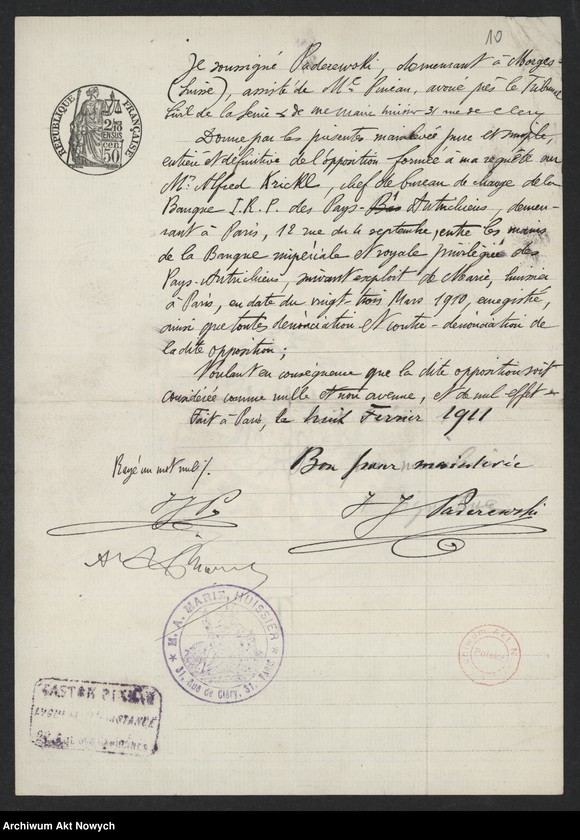 10
RÉPUBLIQUE FRANÇAISE
2/10 EN SUS
50 cen.
Je soussigné Paderewski, demeurant à Morges
(Suisse), assisté de Me Pineau, avoué près le Tribunal
Civil de la Seine & de me Marie huissier 31 rue de Clery
Donne par les présentes mainlevée pure et simple,
entière et définitive de l'opposition formée à ma requête sur
Mr Alfred Krickl, chef de bureau de change de la
Banque I.R.P. des Pays-Bas Autrichiens, demeu-
rant à Paris, 12 rue du 4 septembre, entre les mains
de la Banque impériale et royale privilégiée des
Pays-Autrichiens, suivant exploit de Marie, huissier
à Paris, en date du vingt-trois Mars 1910, enregistré,
ainsi que toutes dénonciation et contre-dénonciation de
la dite opposition;
Voulant en conséquence que la dite opposition soit
considérée comme nulle et non avenue, et de nul effet
Fait à Paris, le huit Février 1911
Rayé un mot nul/.
Bon pour mainlevée
IJP
I J Paderewski
M. A. MARIE, HUISSIER
31, Rue de Cléry, 31, PARIS
GASTON PINEAU
Archiwum Akt Nowych